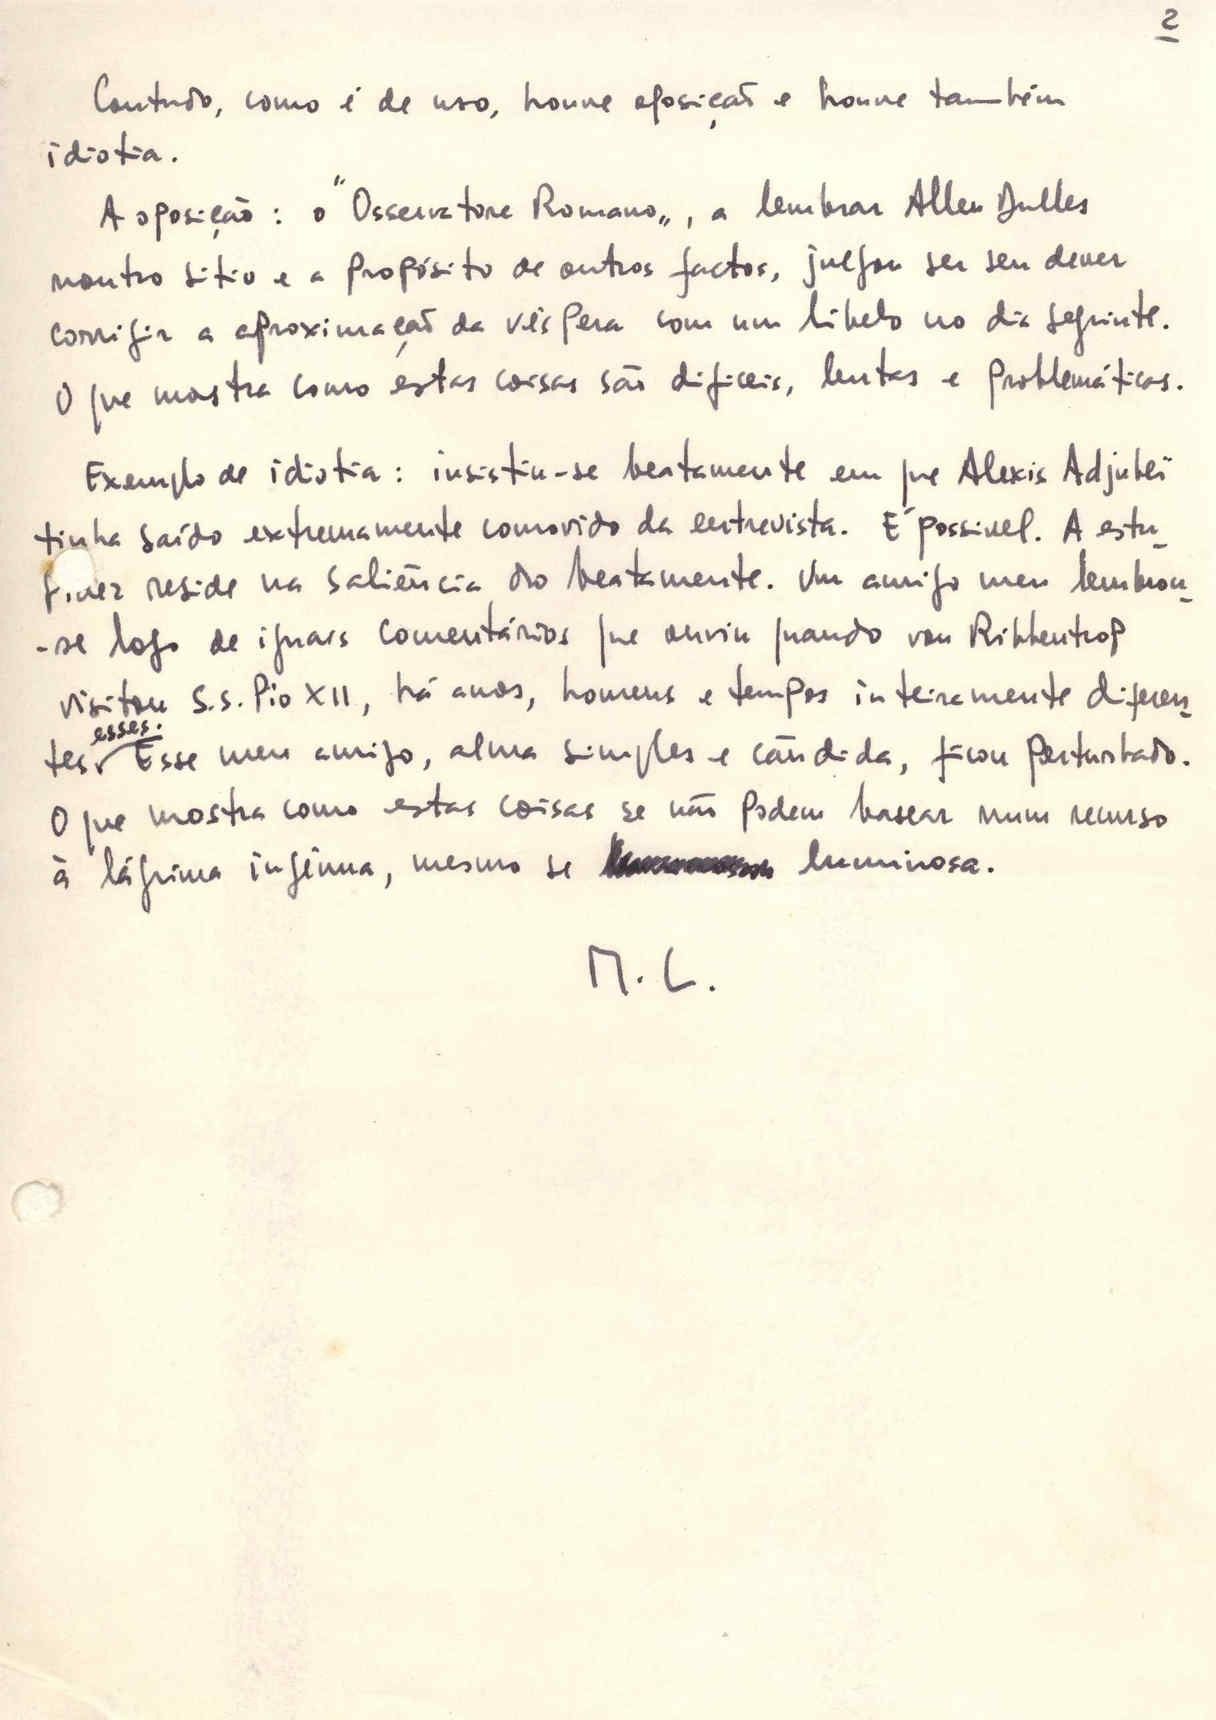 2
Contudo, como é de uso, houve oposição e houve também
idiotia.
A oposição: o "Osservatore Romano„, a lembrar Allen Dulles
noutro sítio e a propósito de outros factos, julgou ser seu dever
corrigir a aproximação da véspera com um libelo no dia seguinte.
O que mostra como estas coisas são difíceis, lentas e problemáticas.
Exemplo de idiotia: insistiu-se beatamente em que Alexis Adjubëi
tinha saído extremamente comovido da entrevista. É possível. A estu-
pidez reside na saliência do beatamente. Um amigo meu lembrou-
-se logo de iguais comentários que ouviu quando von Ribbentrop
visitou S.S. Pio XII, há anos, homens e tempos inteiramente diferen-
esses.
tes. Esse meu amigo, alma simples e cândida, ficou perturbado.
O que mostra como estas coisas se não podem basear num recurso
à lágrima ingénua, mesmo se luminosa.
M. C.